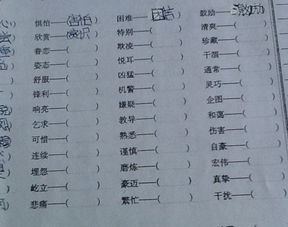 惧怕——(害怕) 困难——(困苦) 鼓励——(激励)
欣赏——( ) 特别——( ) 清爽——( )
眷恋——( ) 欺凌——( ) 珍藏——( )
姿态——( ) 悦耳——( ) 干涸——( )
舒服——( ) 凶猛——( ) 通常——( )
锋利——( ) 机警——( ) 灵巧——( )
响亮——( ) 嫌疑——( ) 企图——( )
乞求——( ) 教导——( ) 和蔼——( )
可惜——( ) 熟悉——( ) 伤害——( )
连续——( ) 谨慎——( ) 自豪——( )
埋怨——( ) 磨炼——( ) 宏伟——( )
屹立——( ) 豪迈——( ) 真挚——( )
悲痛——( ) 繁忙——( ) 干扰——( )